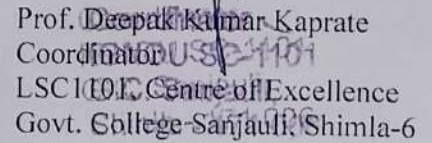 Prof. Deepak Kumar Kaprate
Coordinator
LSC1101, Centre of Excellence
Govt. College Sanjauli, Shimla-6